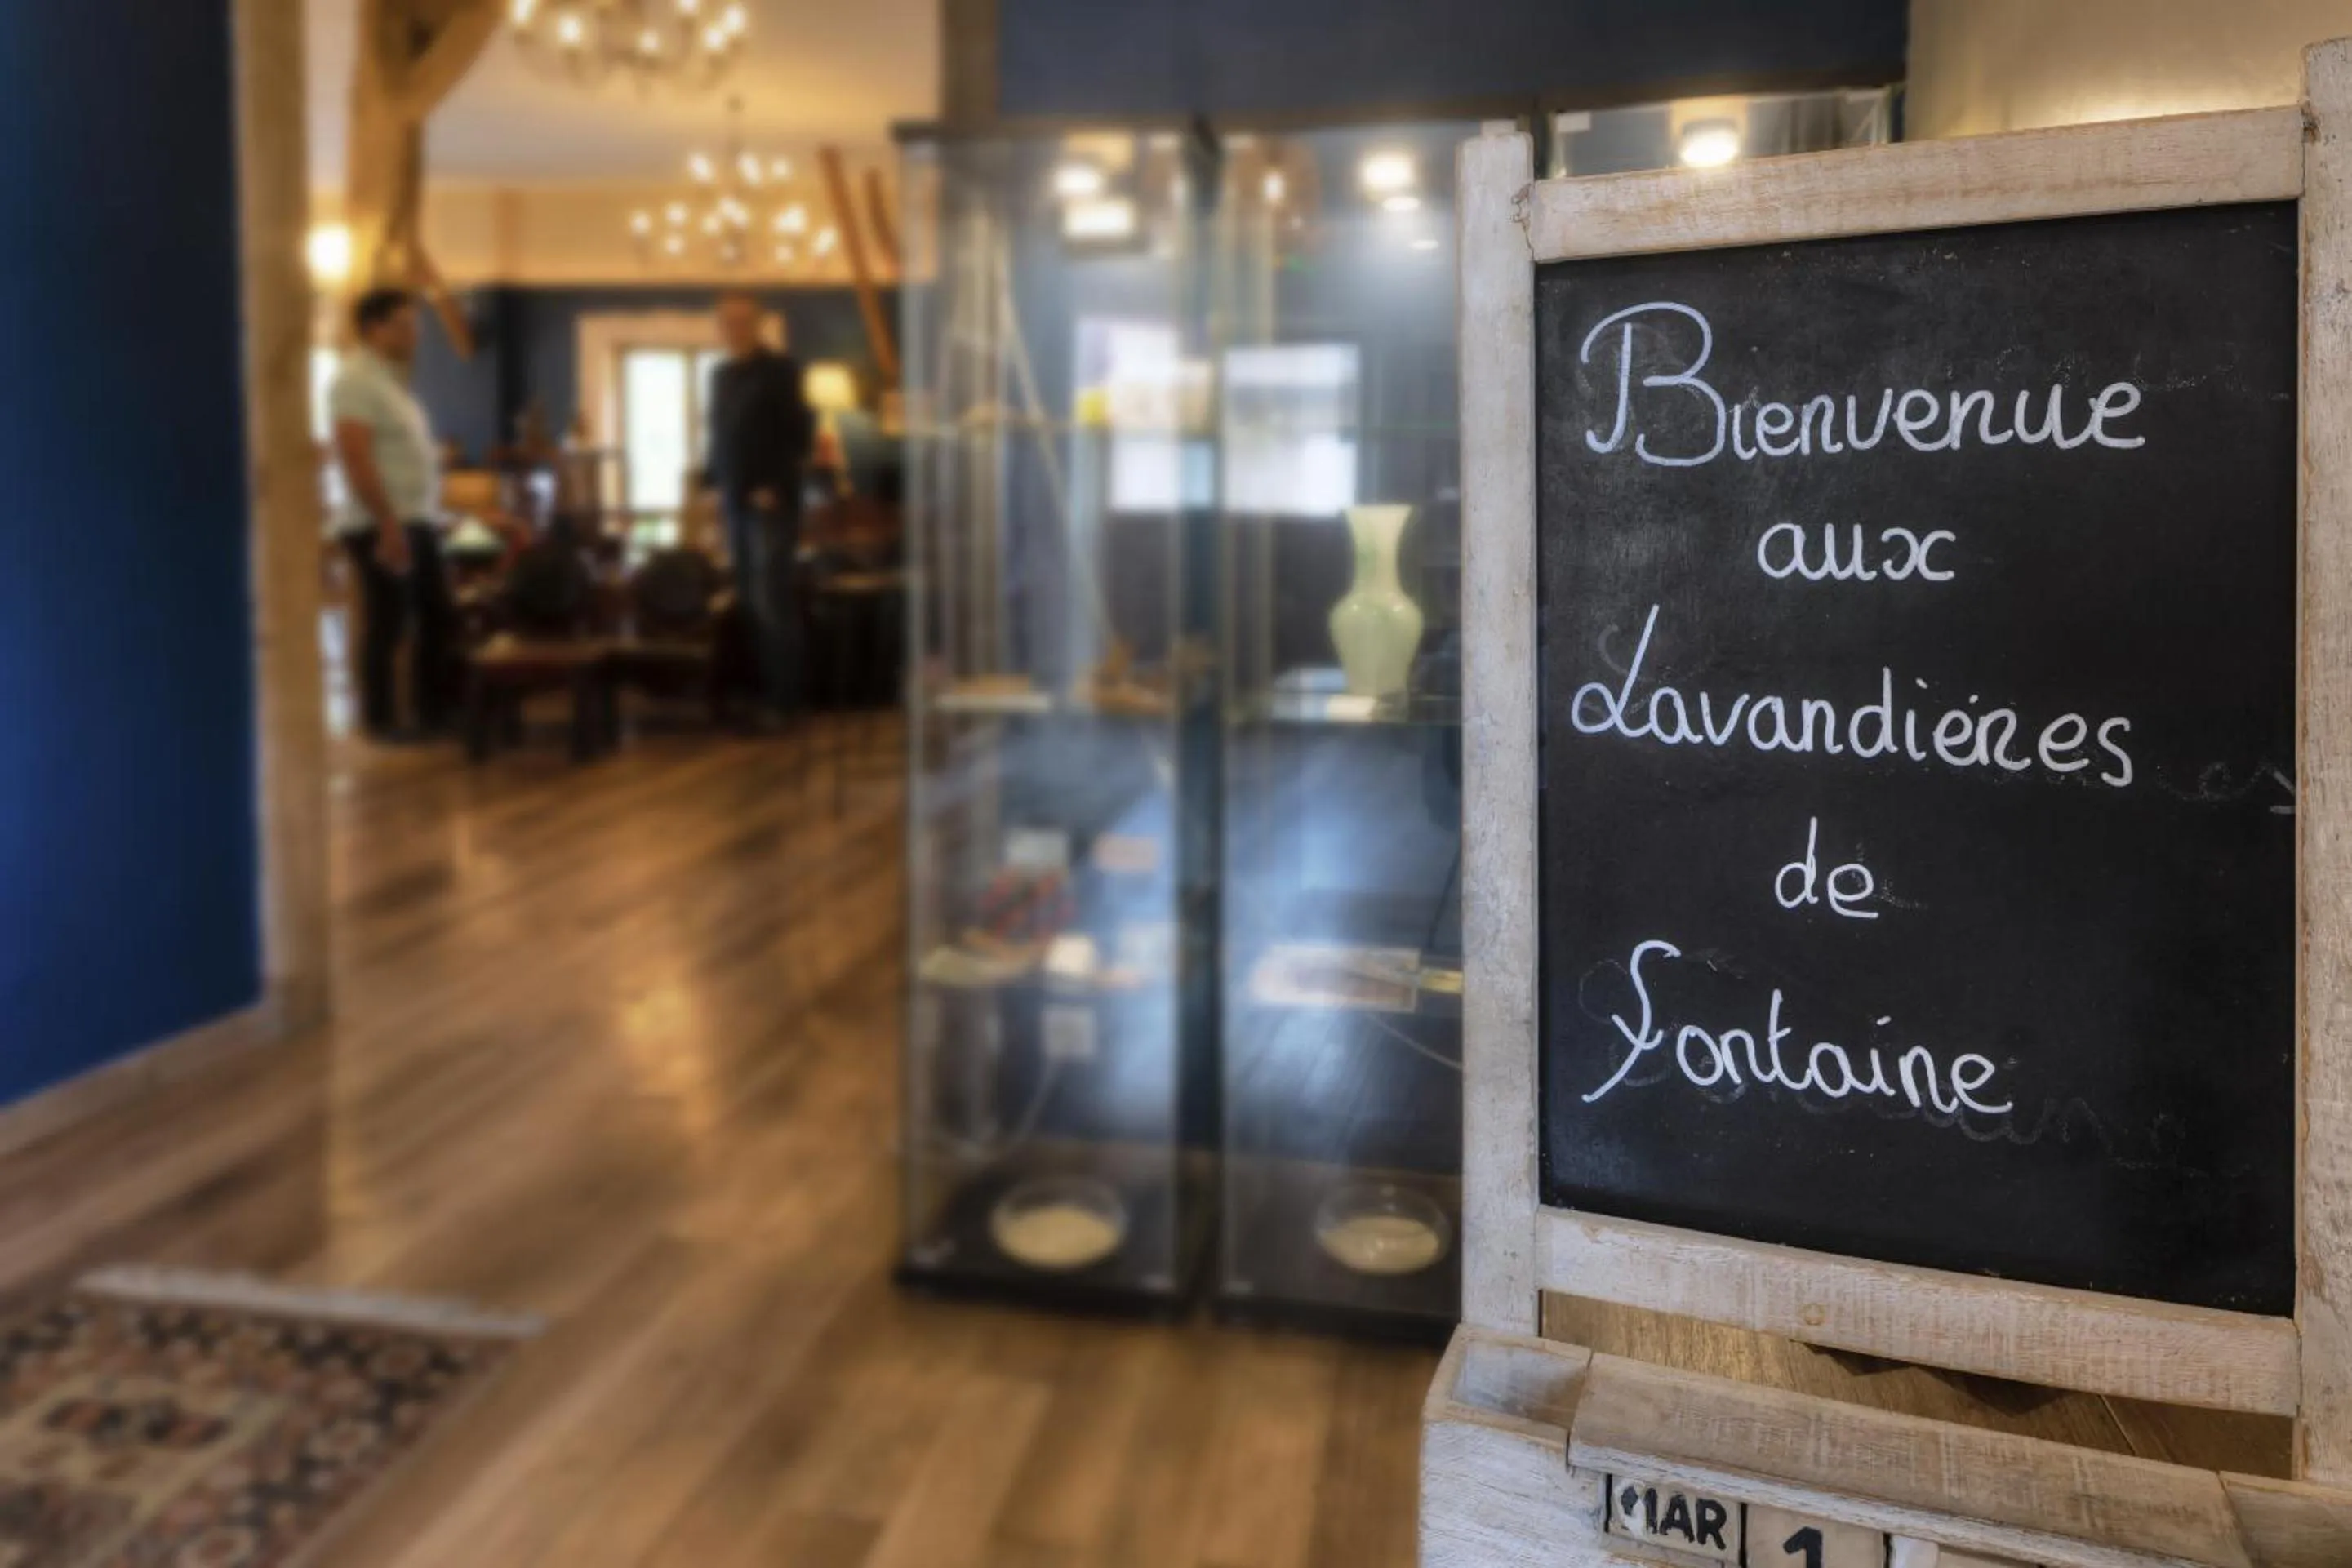 Bienvenue
aux
Lavandiéres
de
Fontaine
MAR 1